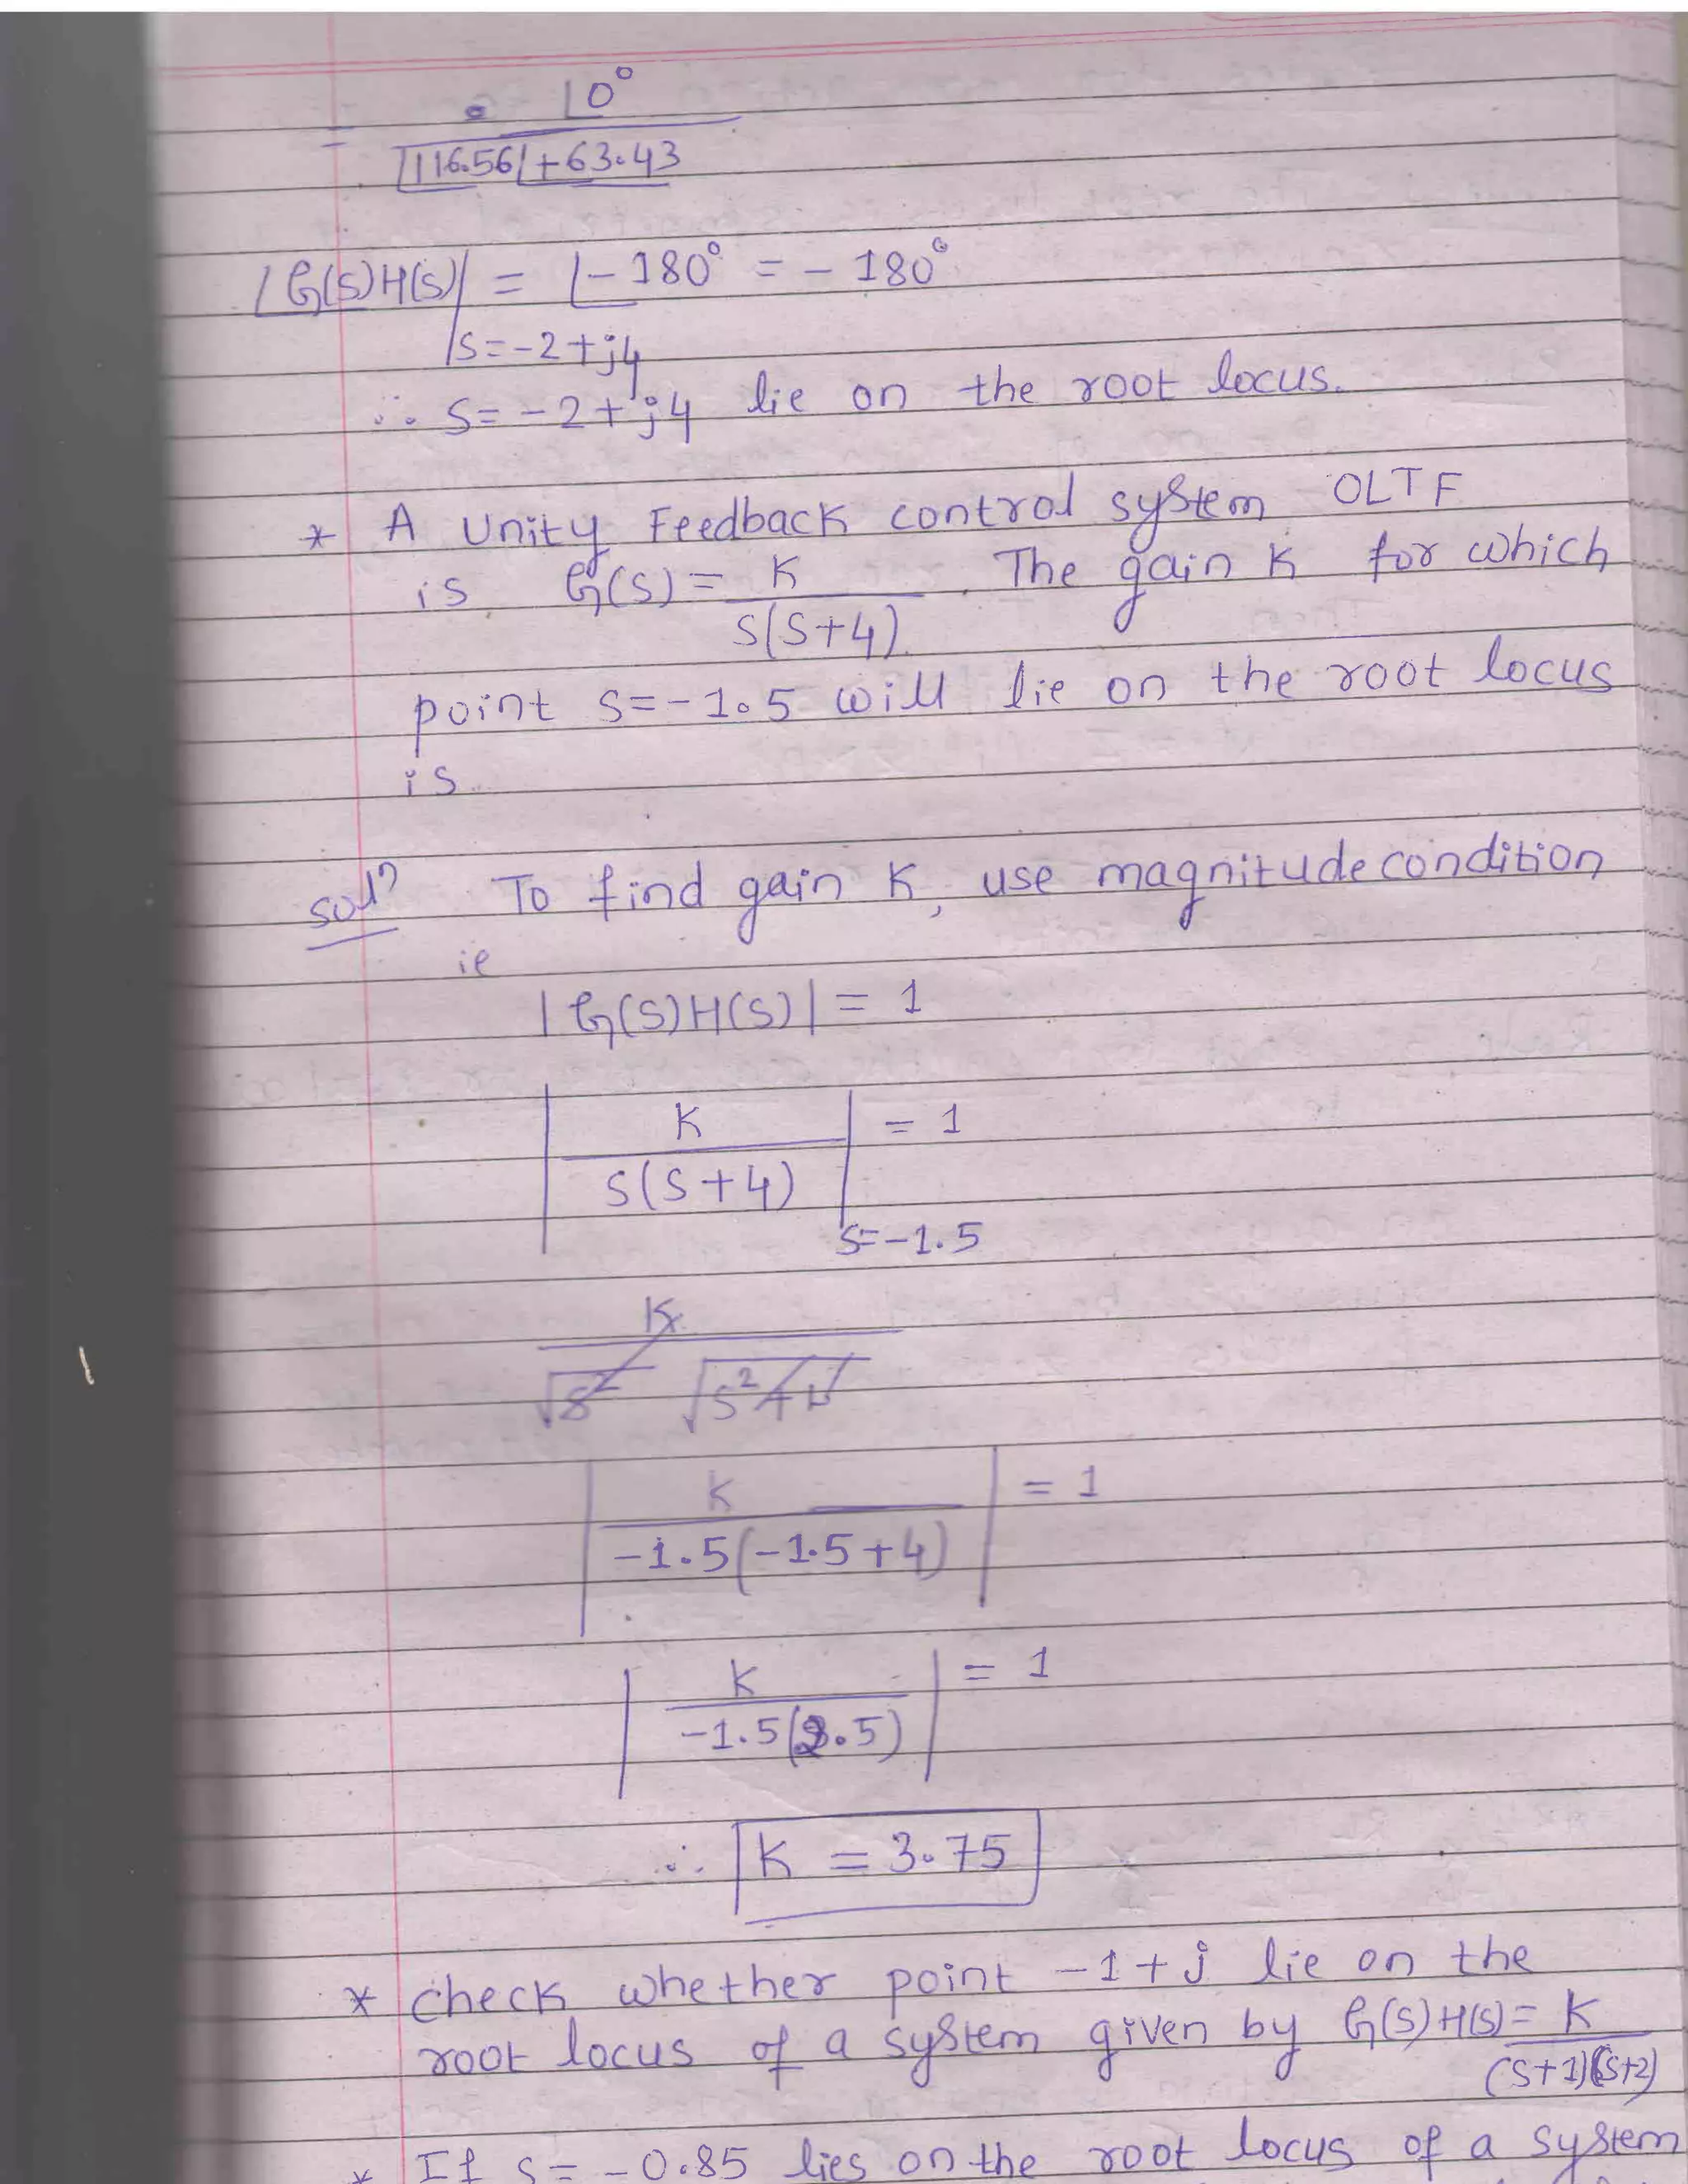 = ∠0°
∠116.56 ∠+63.43
∠G(s)H(s)| = ∠-180° = -180°
s=-2+j4
∴ s=-2+j4 lie on the root locus.
* A Unity Feedback control system OLTF
is G(s) = K . The gain K for which
s(s+4)
point s=-1.5 will lie on the root locus
is
solⁿ To find gain K, use magnitude condition
ie
|G(s)H(s)| = 1
| K | = 1
s(s+4)
s=-1.5
K
√s² √s²+4
| K | = 1
-1.5(-1.5+4)
| K | = 1
-1.5(2.5)
∴ K = 3.75
* check whether point -1+j lie on the
root locus of a system given by G(s)H(s) = K
(s+1)(s+2)
* If s=-0.85 lies on the root locus of a system